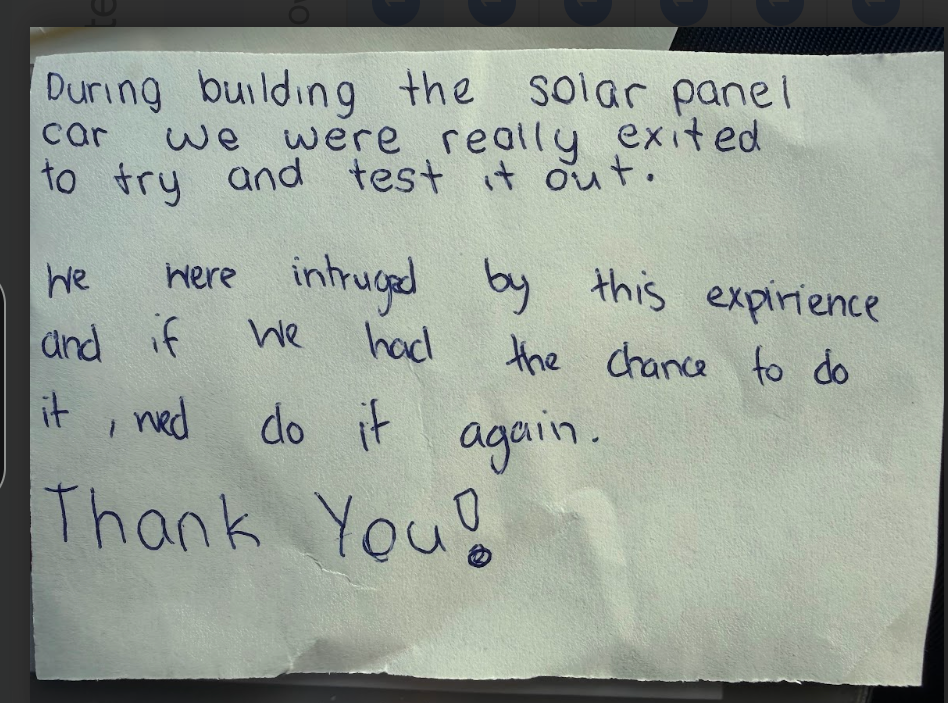 During building the solar panel
car we were really exited
to try and test it out.
We were intruged by this expirience
and if we had the chance to do
it, wed do it again.
Thank You!